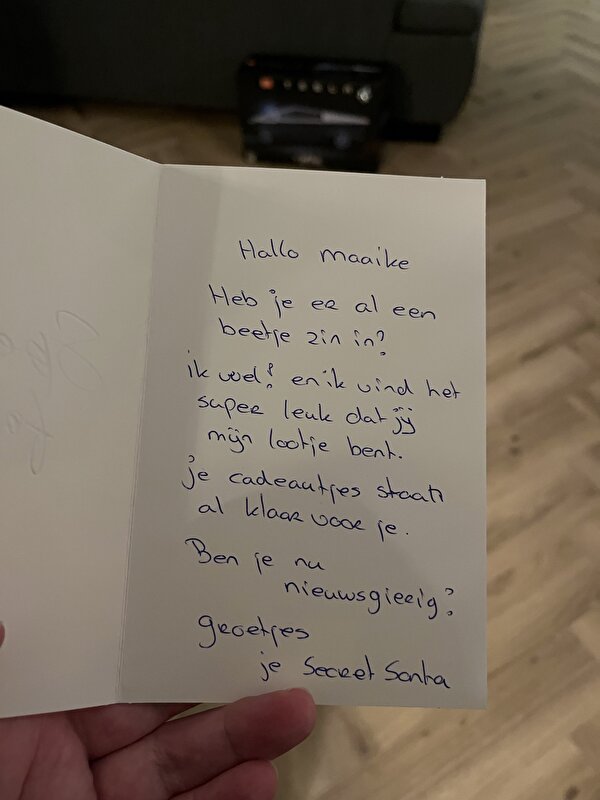 Hallo maaike
Heb je er al een
beetje zin in?
ik wel! en ik vind het
super leuk dat jij
mijn lootje bent.
je cadeautjes staan
al klaar voor je.
Ben je nu
nieuwsgierig?
groetjes
je Secret Santa